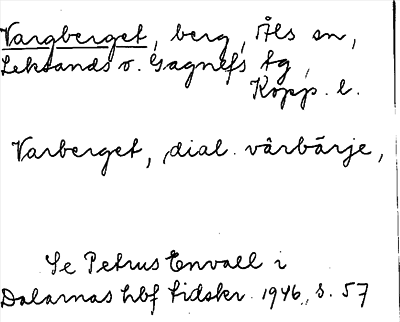 Vargberget, berg, Åls sn,
Leksands o. Gagnefs tg,
Kopp. l.
Varberget, dial. vârbärje,
Se Petrus Envall i
Dalarnas hbf tidskr. 1946, s. 57